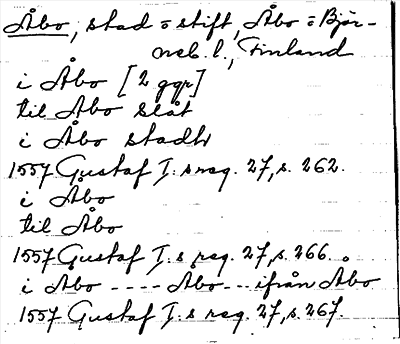 Åbo, stad o stift, Åbo o Björ-
neb. l., Finland
i Åbo [2 ggr]
til Åbo Slåt
i Åbo stadh
1557 Gustaf I:s reg. 27, s. 262.
i Åbo
til Åbo
1557 Gustaf I:s reg. 27, s. 266.
i Åbo ---- Åbo -- ifrån Åbo
1557 Gustaf I:s reg. 27, s. 267.